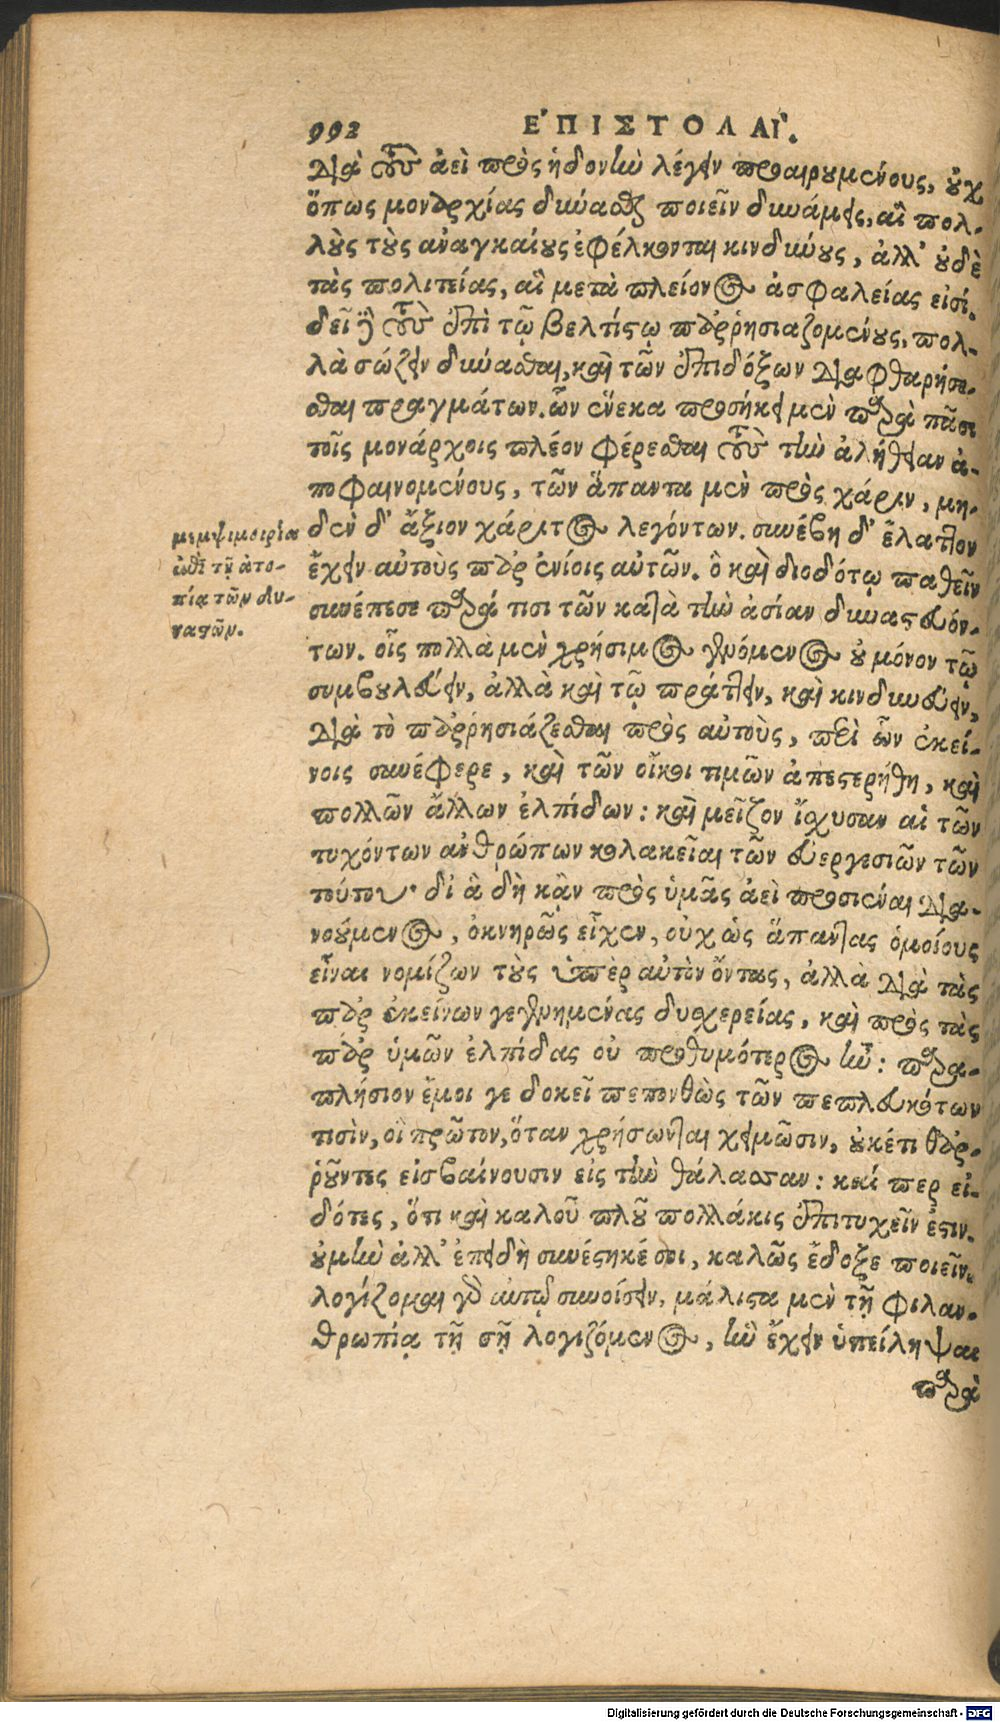 992 ἘΠΙΣΤΟΛΑΊ.
διὰ τοὺς ἀεὶ πρὸς ἡδονὴν λέγειν προαιρουμένους, οὐχ
ὅπως μοναρχίας δύνασθαι ποιεῖν δυνάμεις, αἳ πολ-
λοὺς τοὺς ἀναγκαίους ἐφέλκονται κινδύνους, ἀλλ' οὐδὲ
τὰς πολιτείας, αἳ μετὰ πλείονος ἀσφαλείας εἰσί.
δεῖ δὲ τοὺς ἐπὶ τῷ βελτίστῳ παρρησιαζομένους, πολ-
λὰ σώζειν δύνασθαι, καὶ τῶν ἐπιδόξων διαφθαρήσε-
σθαι πραγμάτων. ὧν ἕνεκα προσήκει μὲν παρὰ πᾶσι
τοῖς μονάρχοις πλέον φέρεσθαι τοὺς τὴν ἀλήθειαν ἀ-
ποφαινομένους, τῶν ἅπαντα μὲν πρὸς χάριν, μη-
δὲν δ' ἄξιον χάριτος λεγόντων. συνέβη δ' ἔλαττον
μεμψιμοιρία
ἐπὶ τῇ ἀτο-
πίᾳ τῶν δυ-
νατῶν.
ἔχειν αὐτοὺς παρ' ἐνίοις αὐτῶν. ὃ καὶ διοδότῳ παθεῖν
συνέπεσε παρά τισι τῶν κατὰ τὴν ἀσίαν δυναστευόν-
των. οἷς πολλὰ μὲν χρήσιμος γενόμενος οὐ μόνον τῷ
συμβουλεύειν, ἀλλὰ καὶ τῷ πράττειν, καὶ κινδυνεύειν,
διὰ τὸ παρρησιάζεσθαι πρὸς αὐτοὺς, περὶ ὧν ἐκεί-
νοις συνέφερε, καὶ τῶν οἴκοι τιμῶν ἀπεστερήθη, καὶ
πολλῶν ἄλλων ἐλπίδων: καὶ μεῖζον ἴσχυσαν αἱ τῶν
τυχόντων ἀνθρώπων κολακεῖαι τῶν εὐεργεσιῶν τῶν
τούτου· δι' ἃ δὴ κἂν πρὸς ὑμᾶς ἀεὶ προσιέναι δια-
νούμενος, ὀκνηρῶς εἶχεν, οὐχ ὡς ἅπαντας ὁμοίους
εἶναι νομίζων τοὺς ὑπὲρ αὐτὸν ὄντας, ἀλλὰ διὰ τὰς
παρ' ἐκείνων γεγενημένας δυσχερείας, καὶ πρὸς τὰς
παρ' ὑμῶν ἐλπίδας οὐ προθυμότερος ἦν: παρα-
πλήσιον ἔμοι γε δοκεῖ πεπονθὼς τῶν πεπλευκότων
τισὶν, οἳ πρῶτον, ὅταν χρήσωνται χειμῶσιν, οὐκέτι θαρ-
ροῦντες εἰσβαίνουσιν εἰς τὴν θάλασσαν: καί περ εἰ-
δότες, ὅτι καὶ καλοῦ πλοῦ πολλάκις ἐπιτυχεῖν ἔστιν.
οὐ μὴν ἀλλ' ἐπειδὴ συνέστηκέ σοι, καλῶς ἔδοξε ποιεῖν.
λογίζομαι γὰρ αὐτῷ συνοίσειν, μάλιστα μὲν τῇ φιλαν-
θρωπίᾳ τῇ σῇ λογιζόμενος, ἣν ἔχειν ὑπείληψαι
παρὰ
Digitalisierung gefördert durch die Deutsche Forschungsgemeinschaft - DFG